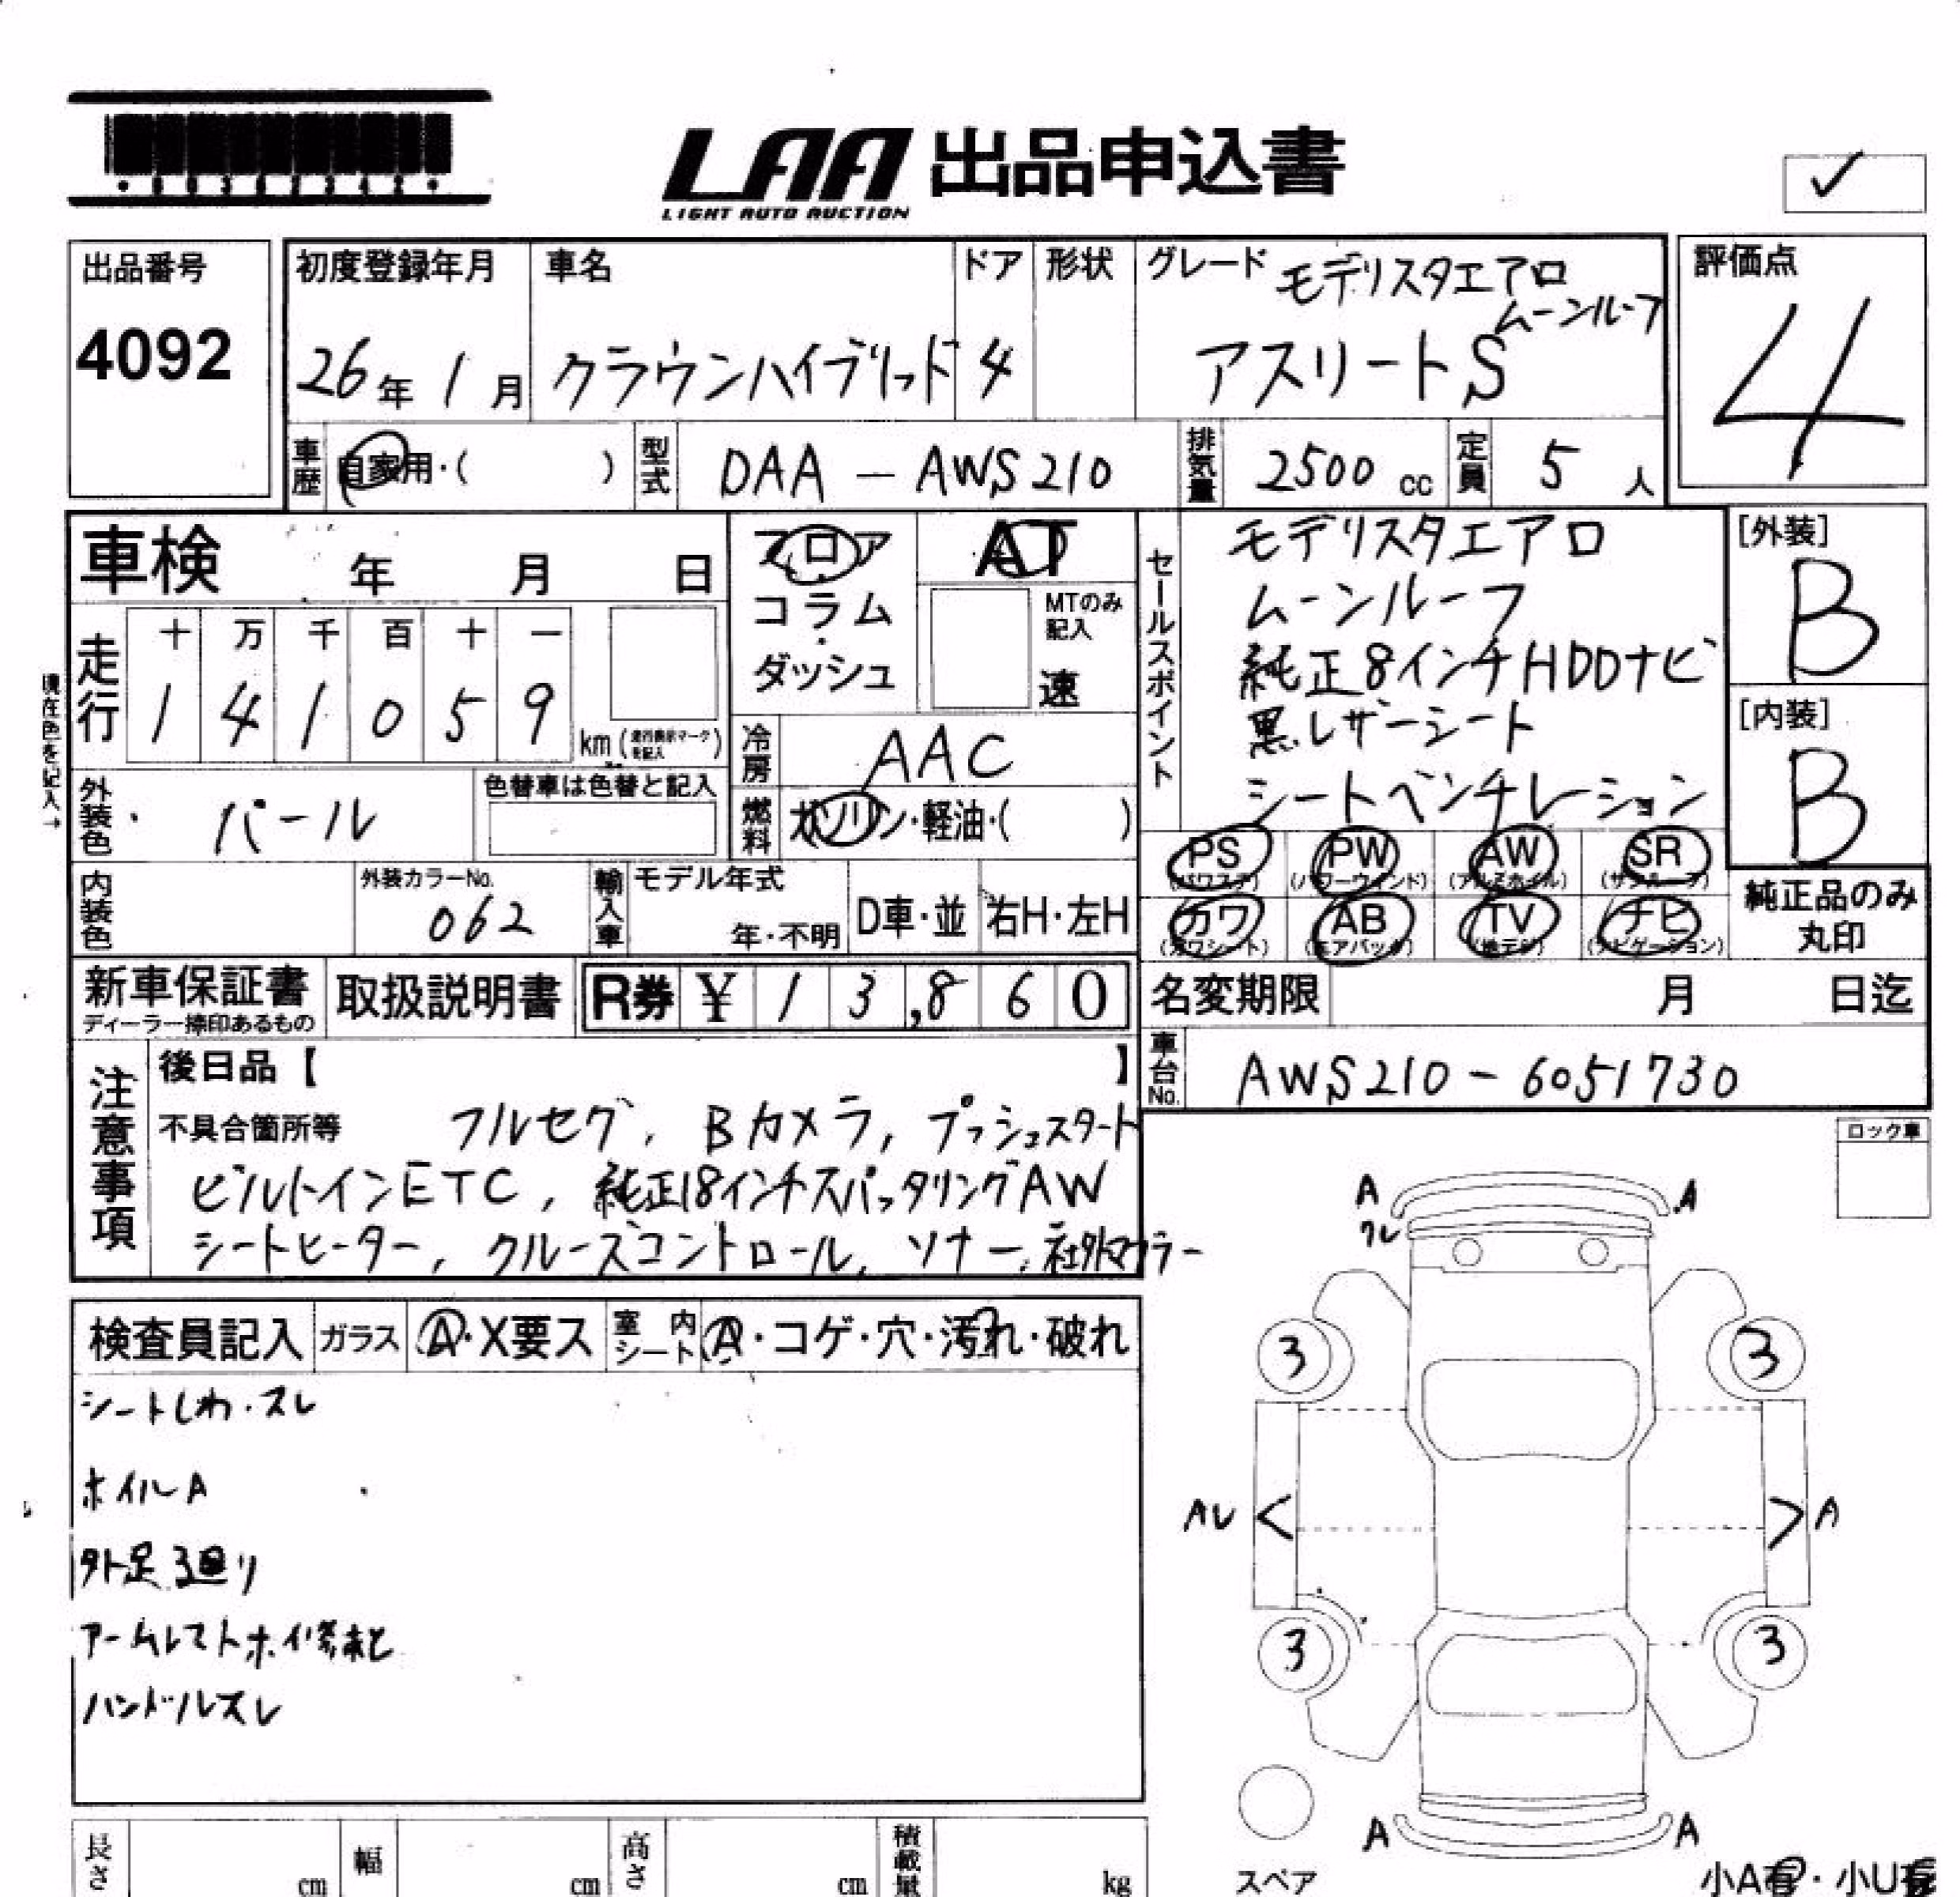 LAA 出品申込書
LIGHT AUTO AUCTION
✓
出品番号
4092
初度登録年月
26年1月
車名
クラウンハイブリッド
ドア
4
形状
グレード
モデリスタエアロ
ムーンルーフ
アスリートS
評価点
4
車歴
自家用・( )
型式
DAA-AWS210
排気量
2500cc
定員
5人
車検 年 月 日
フロア
コラム
ダッシュ
AT
MTのみ記入
速
セールスポイント
モデリスタエアロ
ムーンルーフ
純正8インチHDDナビ
黒レザーシート
シートベンチレーション
[外装]
B
[内装]
B
現在色を記入→
走行
十 万 千 百 十 一
1 4 1 0 5 9 km
冷房
AAC
外装色
パール
色替車は色替と記入
燃料
ガソリン・軽油・( )
PS PW AW SR
(パワステ) (パワーウインド) (アルミホイル) (サンルーフ)
カワ AB TV ナビ
(カワシート) (エアバック) (地デジ) (ナビゲーション)
純正品のみ
丸印
内装色
外装カラーNo.
062
輸入車
モデル年式
年・不明
D車・並
右H・左H
新車保証書
ディーラー捺印あるもの
取扱説明書
R券 ¥ 13,860
名変期限 月 日迄
車台No.
AWS210-6051730
注意事項
後日品【 】
不具合箇所等
フルセグ, Bカメラ, プッシュスタート
ビルトインETC, 純正18インチスパッタリングAW
シートヒーター, クルーズコントロール, ソナー, 社外マフラー
ロック車
検査員記入
ガラス
A・X要ス
室内シート
A・コゲ・穴・汚れ・破れ
シートしわ・スレ
ホイルA
外足廻り
ハンドルスレ
A A
3 3
A
3 3
A A
スペア
小A有・小U有
長さ cm
幅 cm
高さ cm
積載量 kg